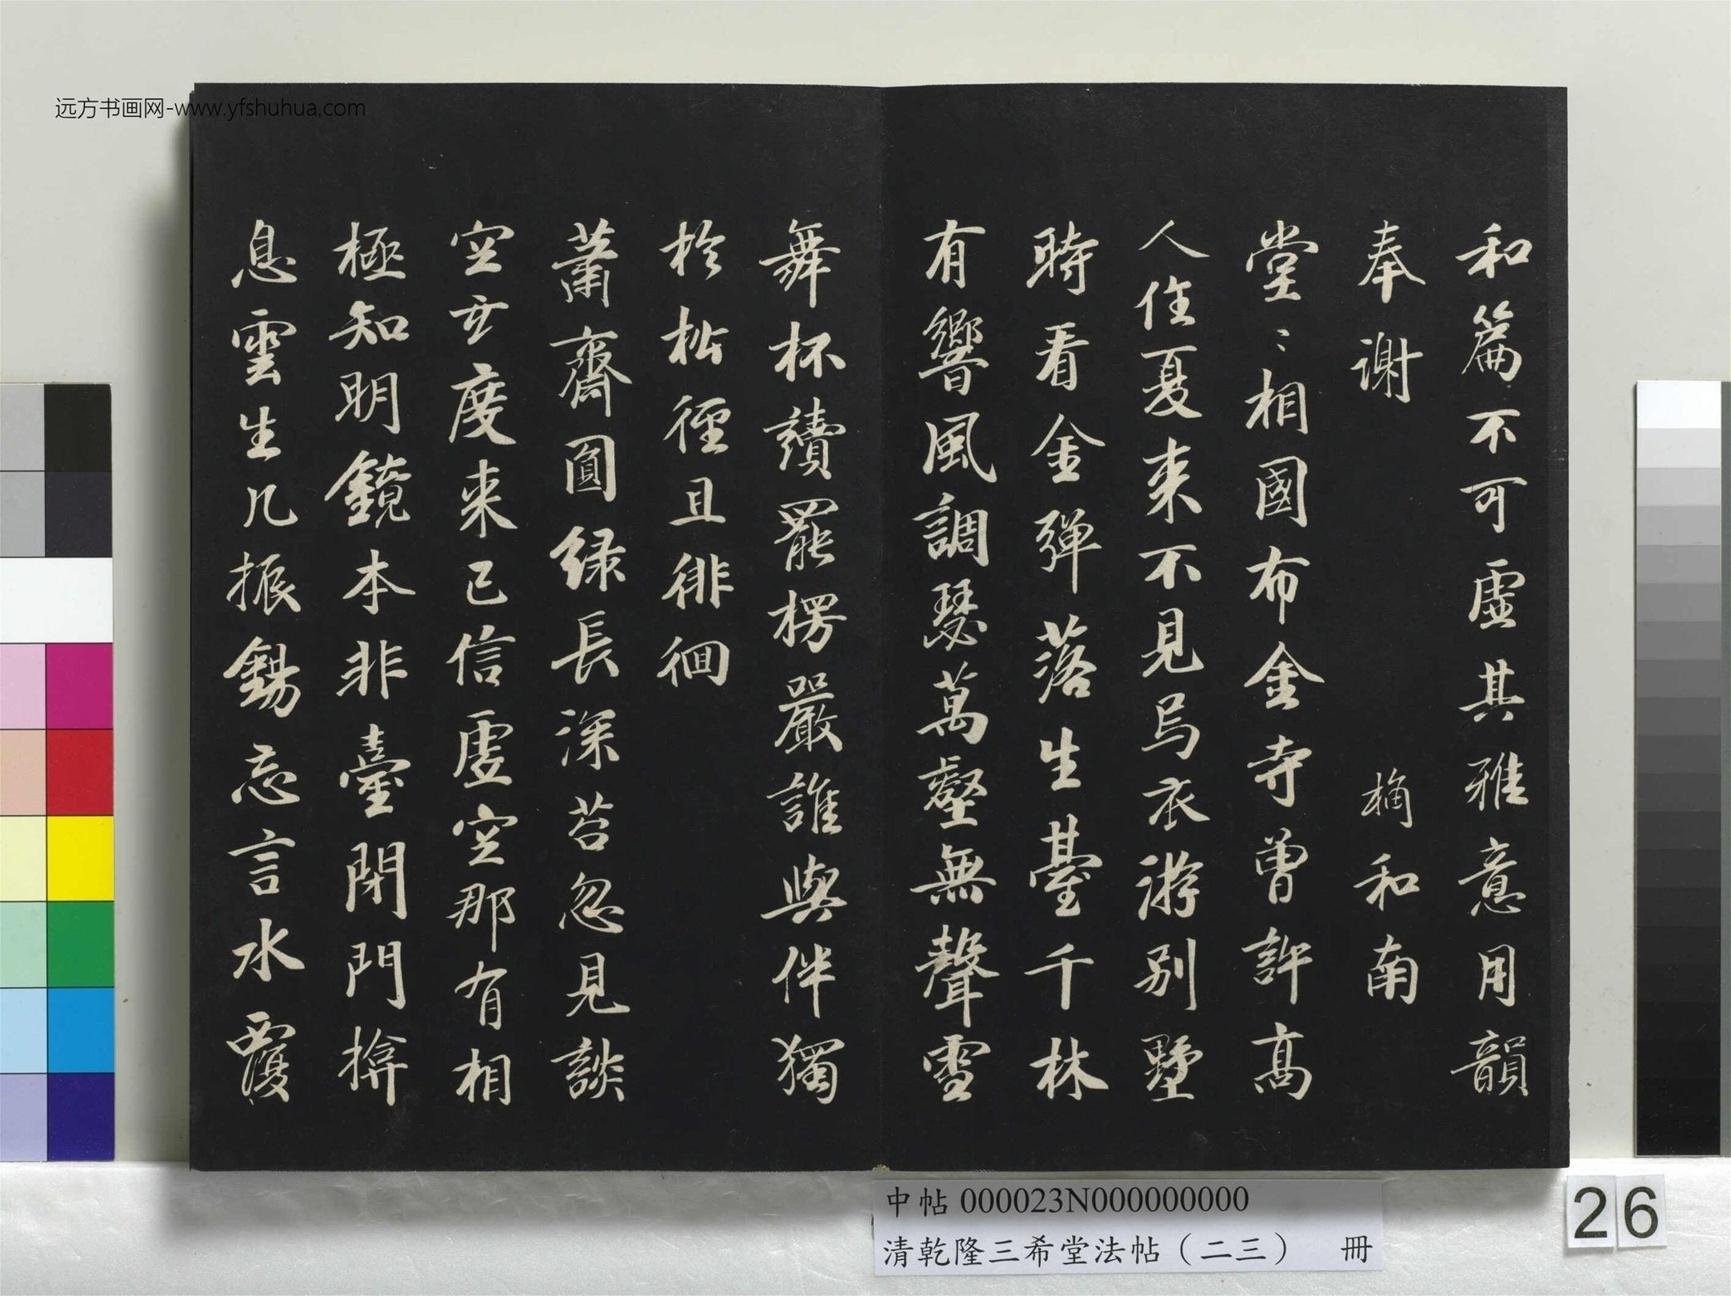 远方书画网-www.yfshuhua.com
和篇不可虛其雅意用韻
奉謝 和南
堂〻相國布金寺曾許高
人住夏来不見烏衣游別墅
時看金彈落生臺千林
有響風調瑟萬壑無聲雪
舞杯讀罷楞嚴誰與伴獨
於松徑且徘徊
蕭齋圓綠長深苔忽見談
空亦度来已信虛空那有相
極知明鏡本非臺閉門揜
息雲生几振錫忘言水覆
中帖 000023N000000000
清乾隆三希堂法帖（二三） 冊
26